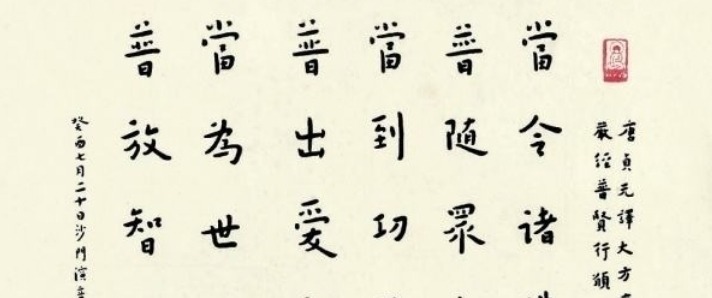 唐貞元譯大方
嚴經普賢行願
當令諸
普隨眾
當到功
普出愛
當為世
普放智
癸酉七月二十日沙門演